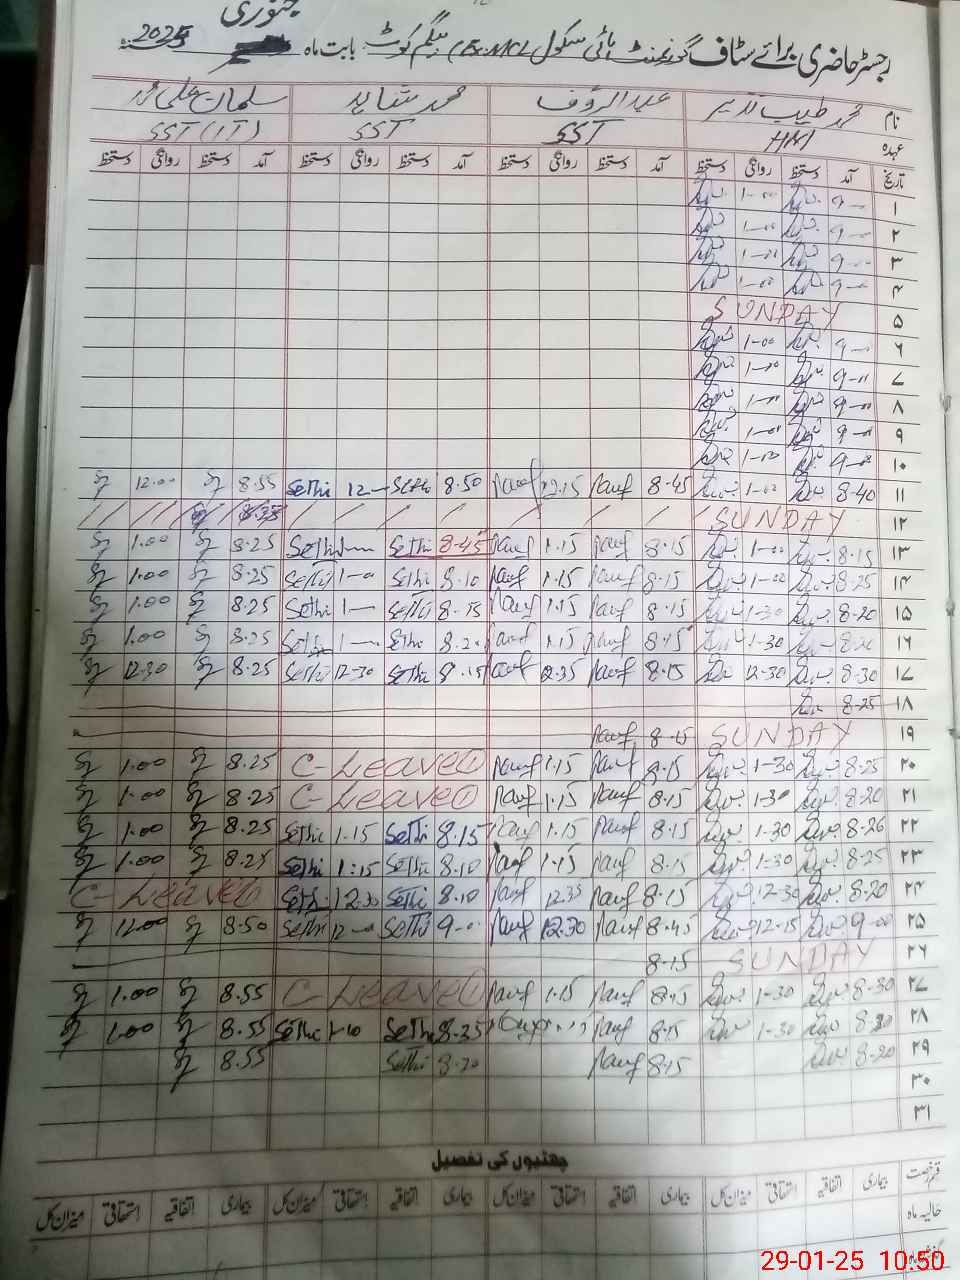 جنوری
رجسٹر حاضری برائے سٹاف گورنمنٹ ہائی سکول (E.M.C) بیگم کوٹ بابت ماہ 2025
نام محمد طیب نذیر عبدالرؤف محمد شاہد سلمان علی محمد
عہدہ HM SST SST SST (IT)
تاریخ آمد دستخط روانگی دستخط آمد دستخط روانگی دستخط آمد دستخط روانگی دستخط آمد دستخط روانگی دستخط
۱ 9- 1-00
۲ 9- 1-00
۳ 9- 1-00
۴ 9- 1-00
۵ SUNDAY
۶ 9- 1-00
۷ 9-00 1-00
۸ 9-00 1-00
۹ 9-00 1-00
۱۰ 9-00 1-00
۱۱ 8-40 1-00 8-45 Rauf 12.15 Rauf 8.50 Sethi 12- Sethi 8.55 12.00
۱۲ SUNDAY 8.35
۱۳ 8-15 1-00 8.15 Rauf 1.15 Rauf 8-45 Sethi Sethi 8.25 1.00
۱۴ 8-25 1-00 8.15 Rauf 1.15 Rauf 8.10 Sethi 1-0 Sethi 8.25 1.00
۱۵ 8-20 1-30 8.15 Rauf 1.15 Rauf 8-15 Sethi 1- Sethi 8.25 1.00
۱۶ 8-20 1-30 8.15 Rauf 1.15 Rauf 8.20 Sethi 1- Sethi 8.25 1.00
۱۷ 8-30 12-30 8.15 Rauf 12.35 Rauf 8.15 Sethi 12-30 Sethi 8.25 12.30
۱۸ 8-25
۱۹ SUNDAY 8-15 Rauf
۲۰ 8-25 1-30 8.15 Rauf 1.15 Rauf C-Leave ① 8.25 1.00
۲۱ 8-20 1-30 8.15 Rauf 1.15 Rauf C-Leave ① 8.25 1.00
۲۲ 8-26 1-30 8.15 Rauf 1.15 Rauf 8.15 Sethi 1.15 Sethi 8.25 1.00
۲۳ 8-25 1-30 8.15 Rauf 1.15 Rauf 8.10 Sethi 1:15 Sethi 8.25 1.00
۲۴ 8-20 12-30 8-15 Rauf 12.35 Rauf 8.10 Sethi 12.30 Sethi C-Leave ①
۲۵ 9-00 12-15 8.45 Rauf 12.30 Rauf 9-0 Sethi 12-0 Sethi 8.50 12.00
۲۶ SUNDAY 8-15
۲۷ 8-30 1-30 8.15 Rauf 1.15 Rauf C-Leave ① 8.55 1.00
۲۸ 8-20 1-30 8.15 Rauf 8-35 Sethi 1-10 Sethi 8.55 1.00
۲۹ 8-20 8.15 Rauf 8.20 Sethi 8.55
۳۰
۳۱
چھٹیوں کی تفصیل
قسم رخصت بیماری اتفاقیہ استحقاقی میزان کل بیماری اتفاقیہ استحقاقی میزان کل بیماری اتفاقیہ استحقاقی میزان کل
حالیہ ماہ
29-01-25 10:50